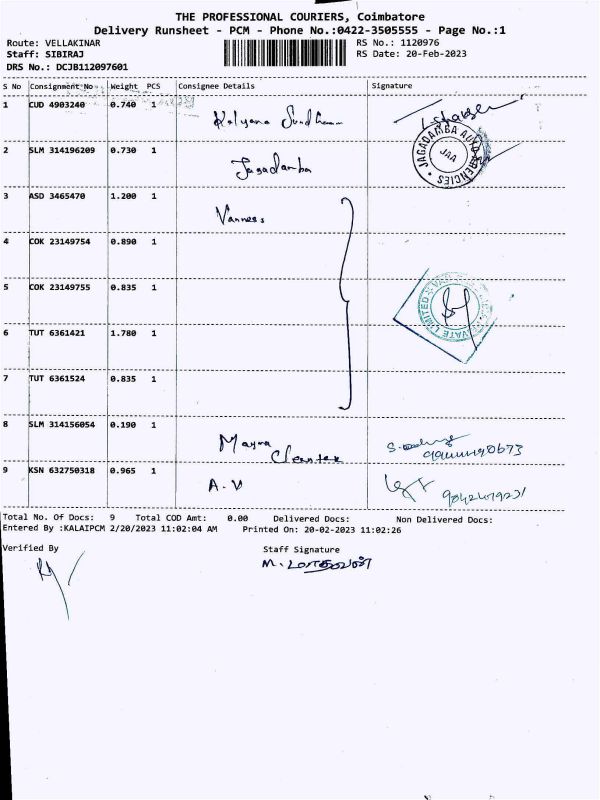 THE PROFESSIONAL COURIERS, Coimbatore
Delivery Runsheet - PCM - Phone No.:0422-3505555 - Page No.:1
Route: VELLAKINAR
RS No.: 1120976
Staff: SIBIRAJ
RS Date: 20-Feb-2023
DRS No.: DCJB112097601
S No Consignment No Weight PCS Consignee Details Signature
1 CUD 4903240 0.740 1 Kalyana
2 SLM 314196209 0.730 1 Jagadamba
JAGADAMBA AUTO AGENCIES
JAA
3 ASD 3465470 1.200 1
4 COK 23149754 0.890 1
5 COK 23149755 0.835 1
PRIVATE LIMITED
6 TUT 6361421 1.780 1
7 TUT 6361524 0.835 1
8 SLM 314156054 0.190 1
9 KSN 632750318 0.965 1 A.V
Total No. Of Docs: 9 Total COD Amt: 0.00 Delivered Docs: Non Delivered Docs:
Entered By :KALAIPCM 2/20/2023 11:02:04 AM Printed On: 20-02-2023 11:02:26
Verified By Staff Signature